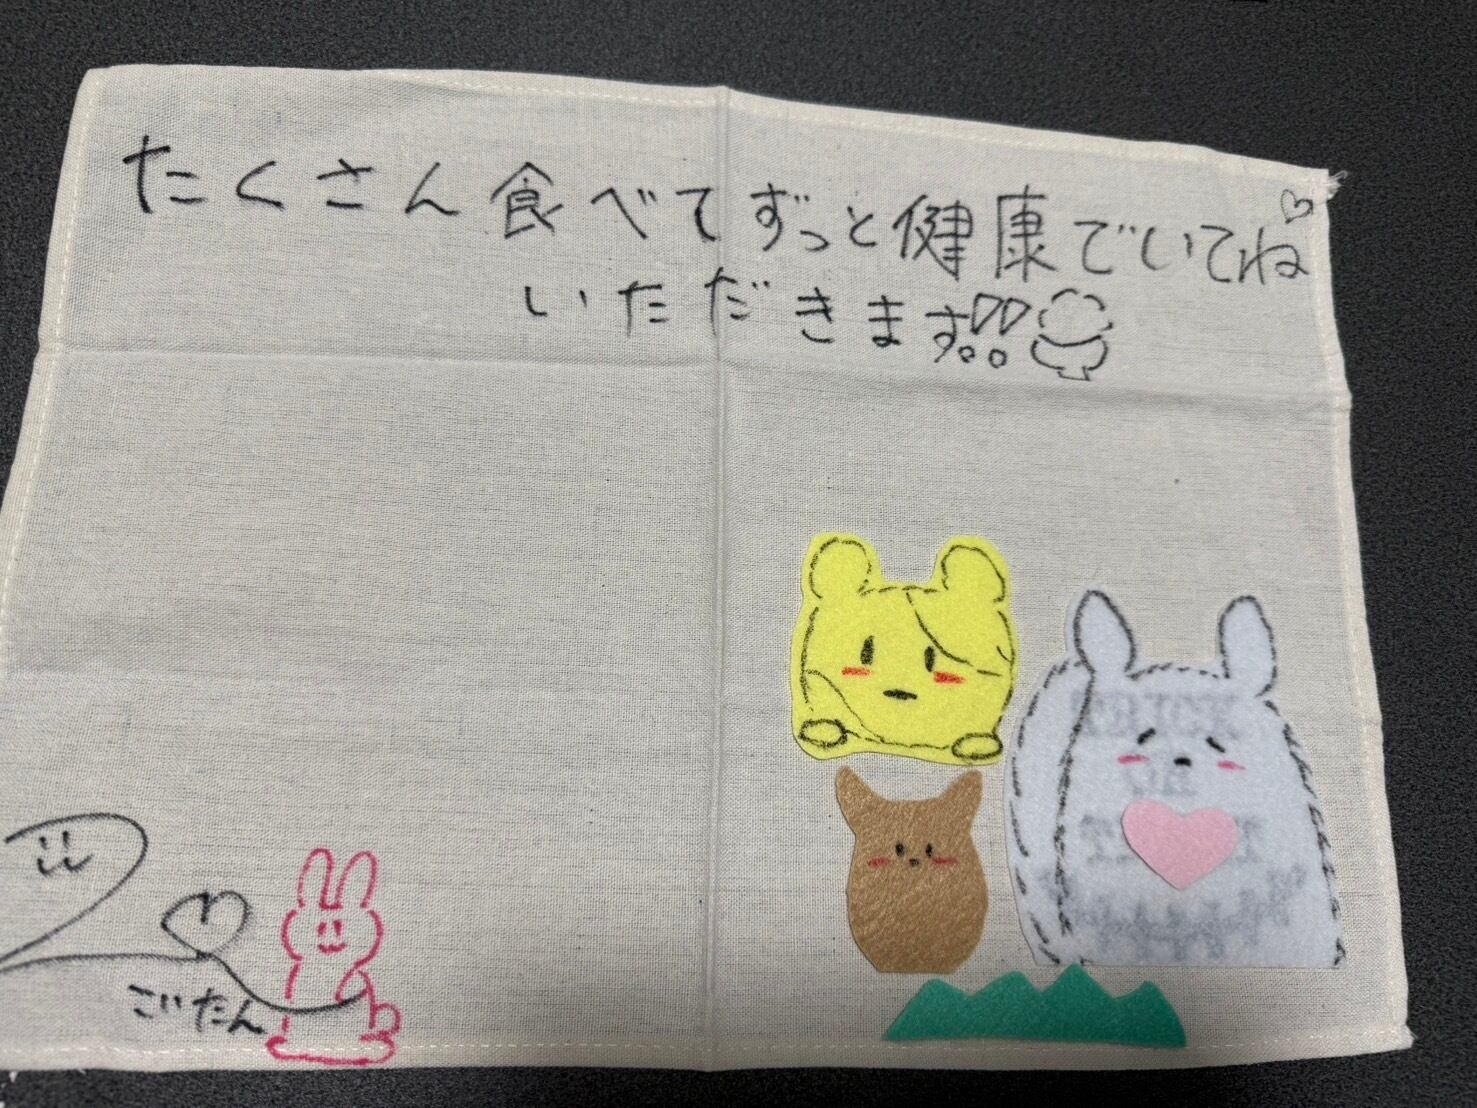 たくさん食べてずっと健康でいてね♡
いただきます!!
こいたん